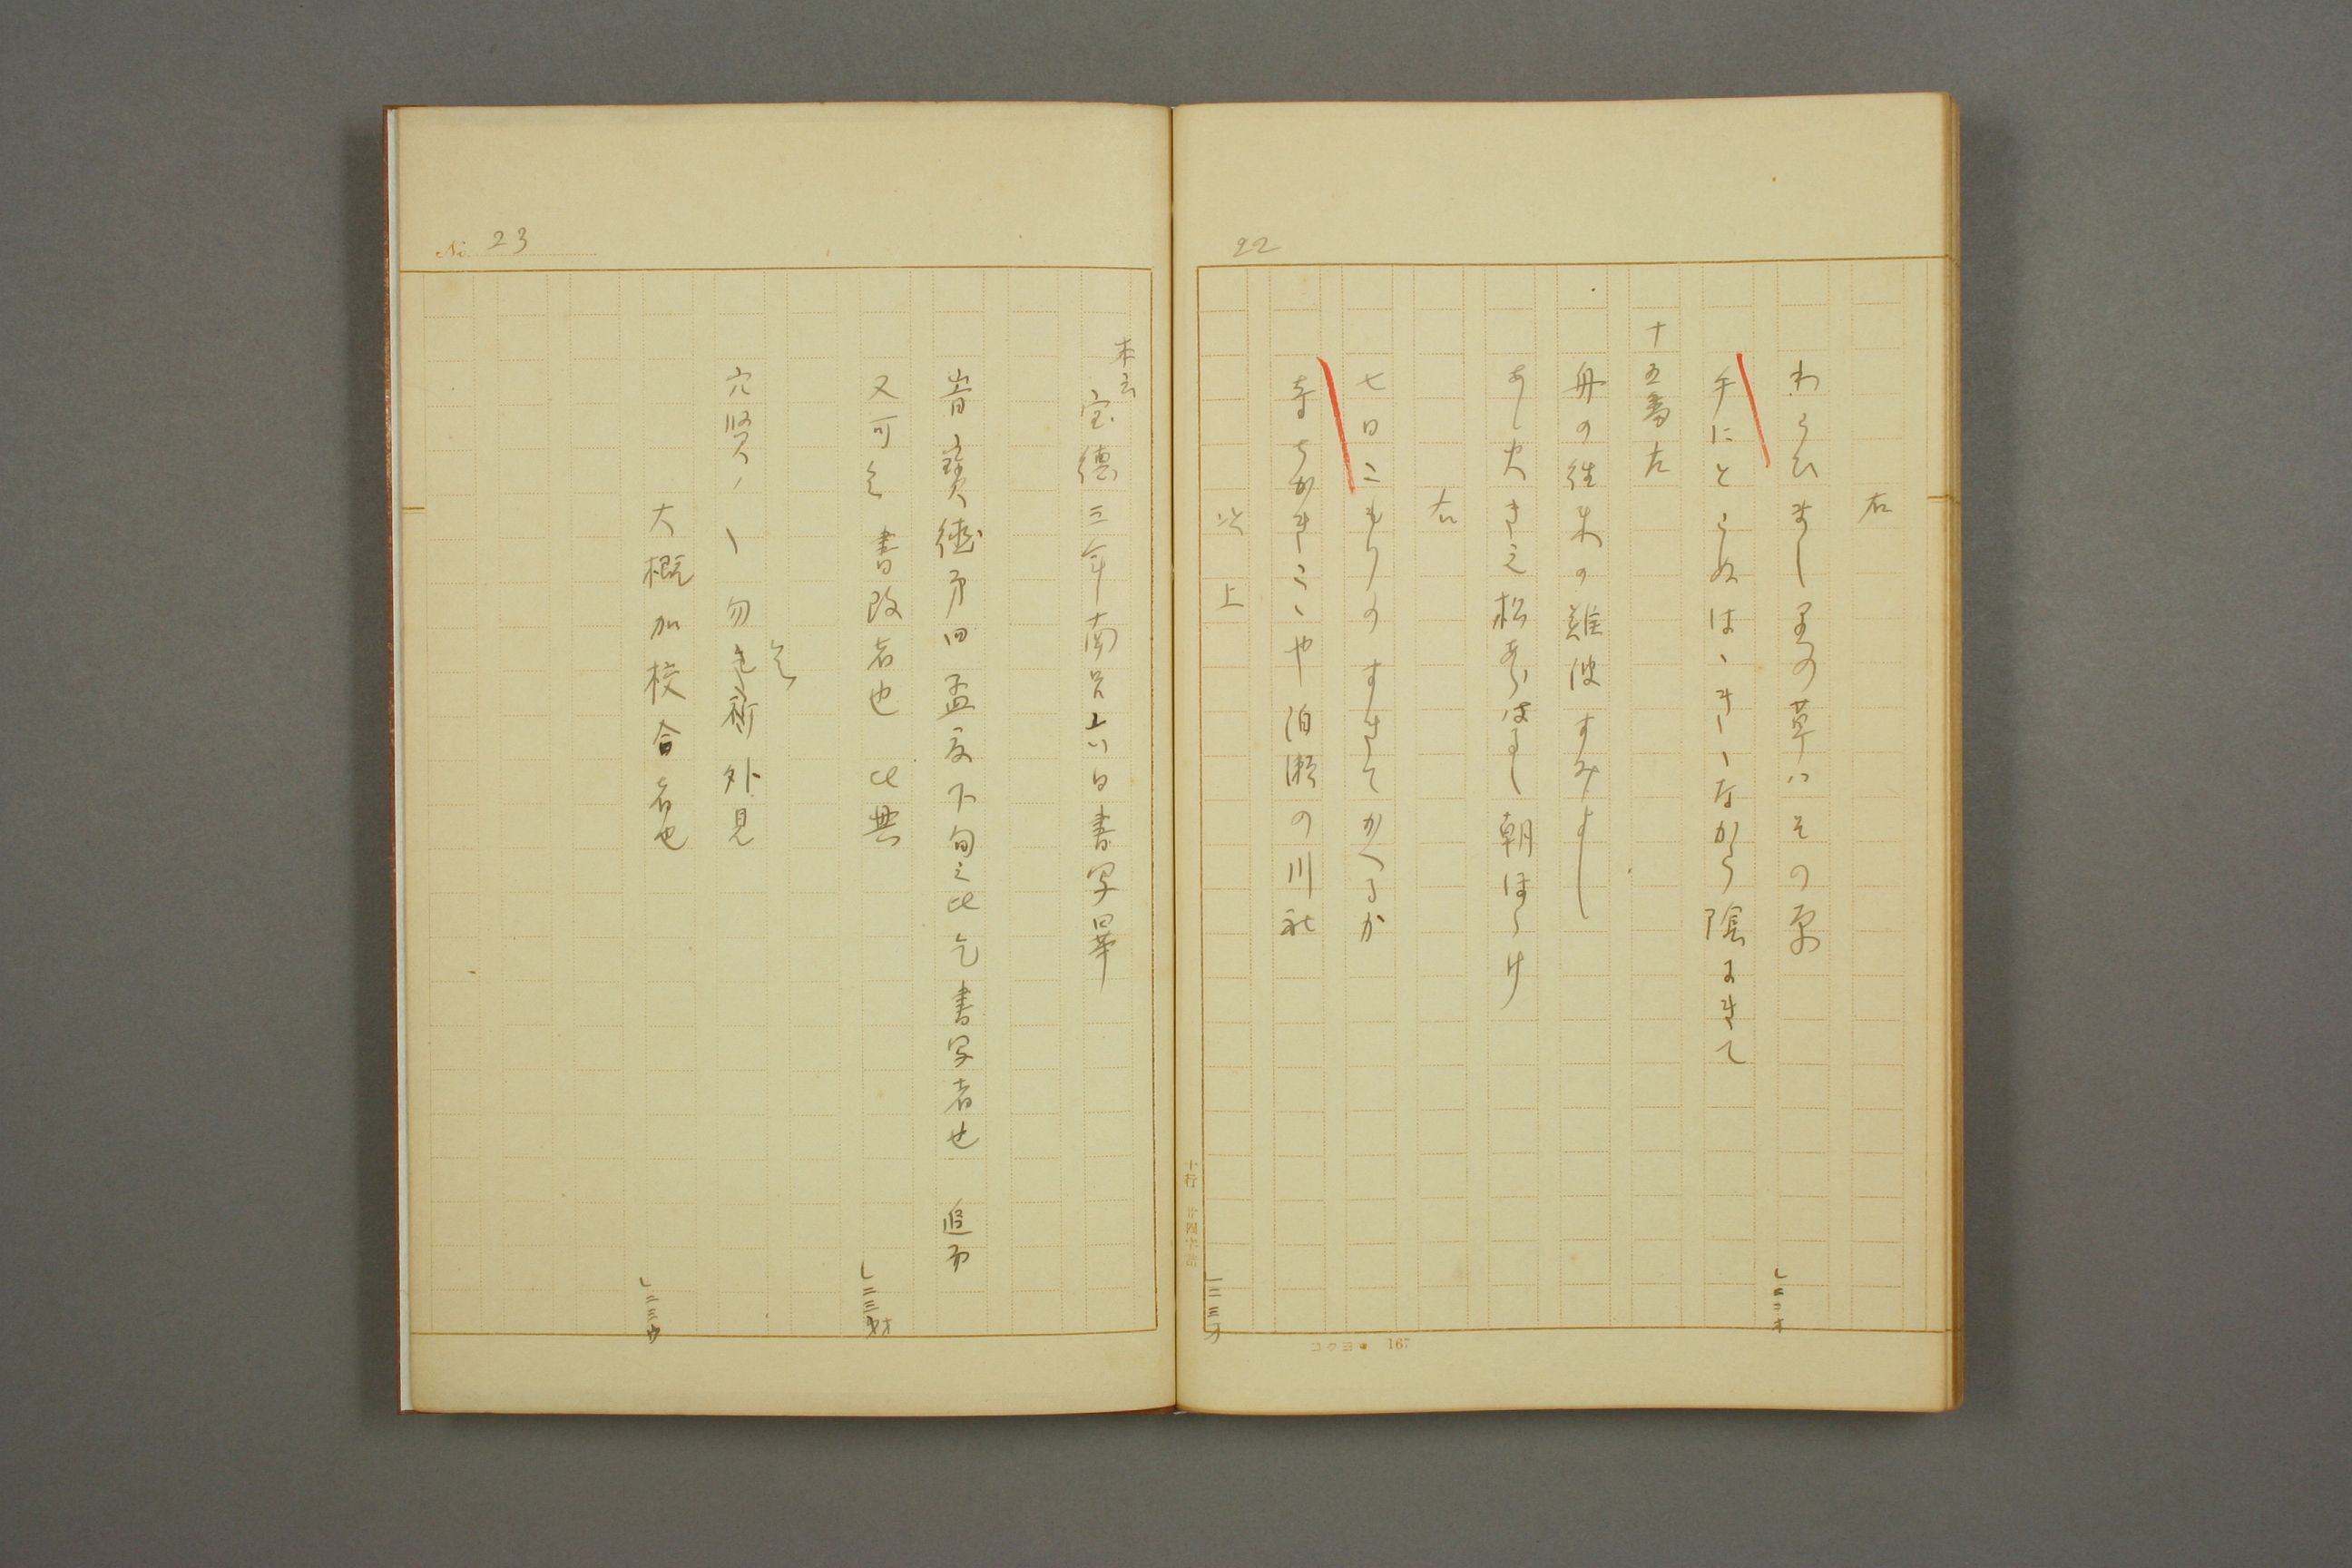 22
右
わらひまし里の草はその原
手にとらぬはゝきゝなから陰にきて
十五番左
舟の往来の難波すみよし
あし火さえ松あらはるし朝ほらけ
右
七日こもりのすきてかへるか
寺ちかきこゝや泊瀬の川社
以上
十行 廿四字詰
コクヨ 167
No. 23
本云
宝徳三年南呂上六日書写畢
旹寳徳第四孟夏下旬之比乞書写者也 追而
又可令書改者也 比興
穴賢ゝゝ勿令外見
大概加校合者也